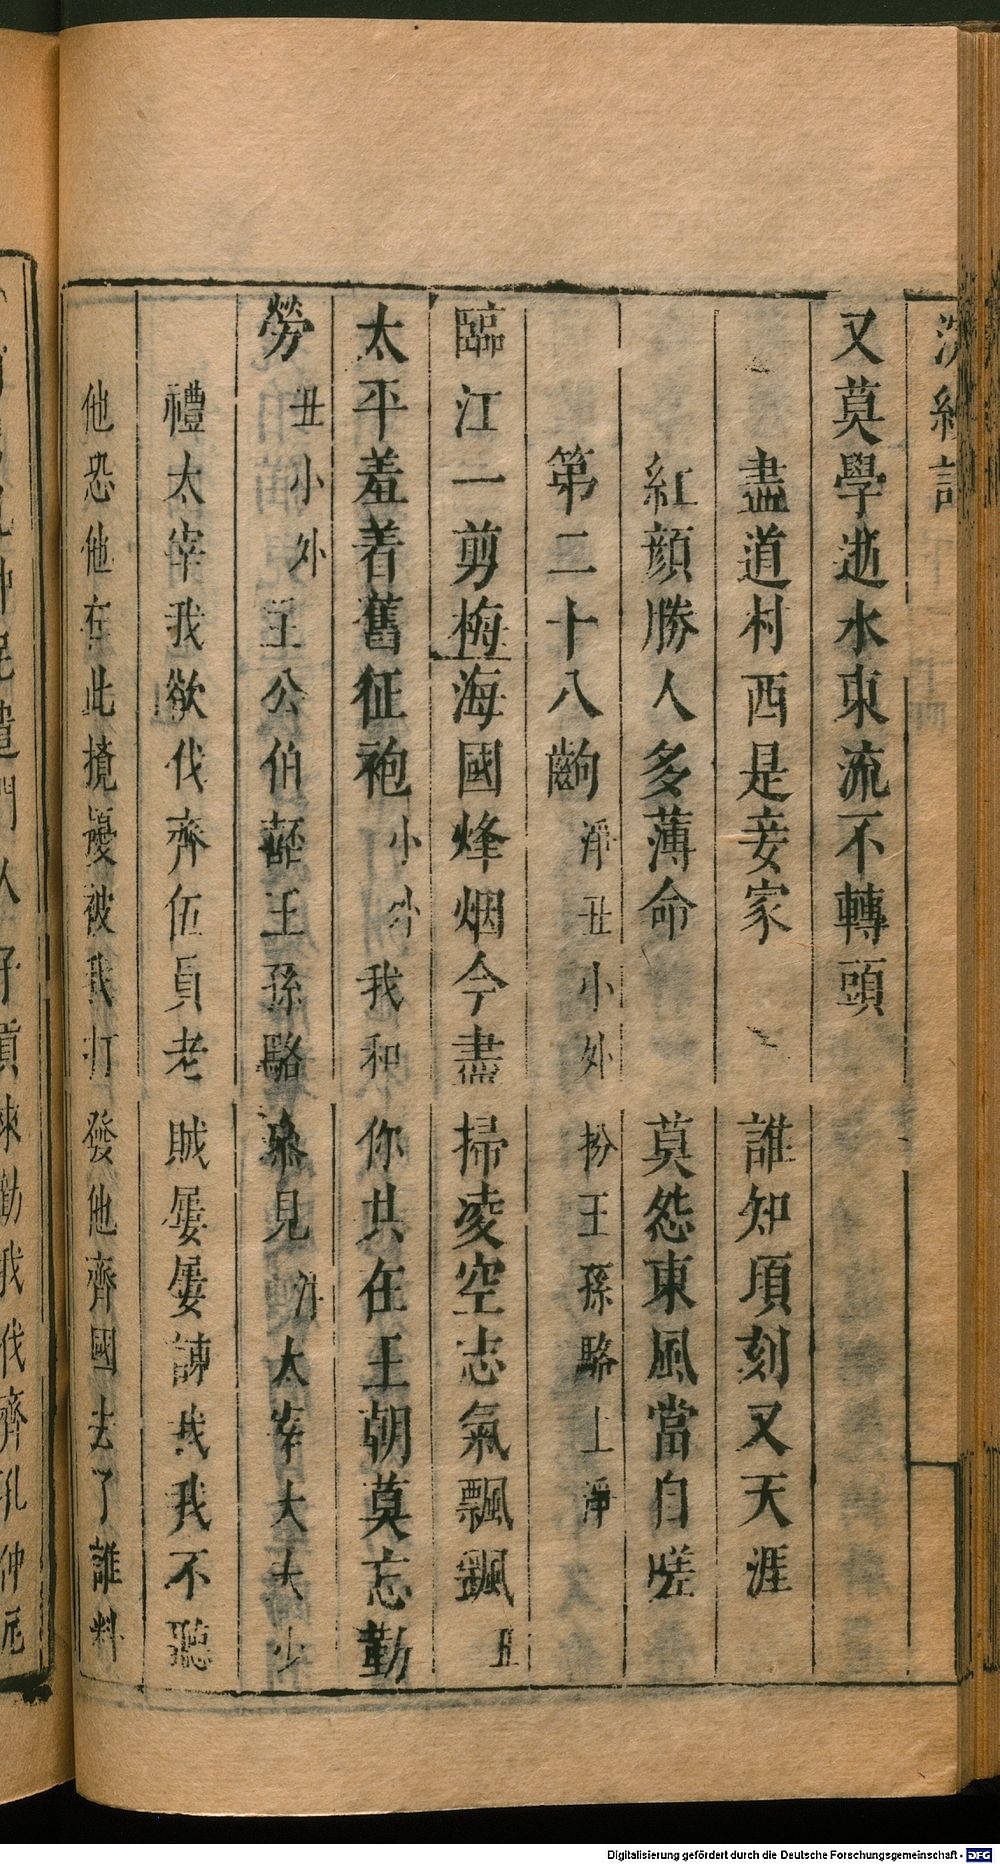 浣紗記
又莫學逝水東流不轉頭
盡道村西是妾家 誰知頃刻又天涯
紅顔勝人多薄命 莫怨東風當自嗟
第二十八齣 淨丑小外扮王孫駱上淨
臨江一剪梅海國烽烟今盡掃凌空志氣飄飄丑
太平羞着舊征袍小外我和你共在王朝莫忘勤
勞丑小外王公伯嚭王孫駱 見淨太宰大夫少
禮太宰我欲伐齊伍員老賊屢屢諫我我不聽
他恐他在此攪擾被我打發他齊國去了誰料
門人子貢來勸我伐齊孔仲尼
Digitalisierung gefördert durch die Deutsche Forschungsgemeinschaft - DFG